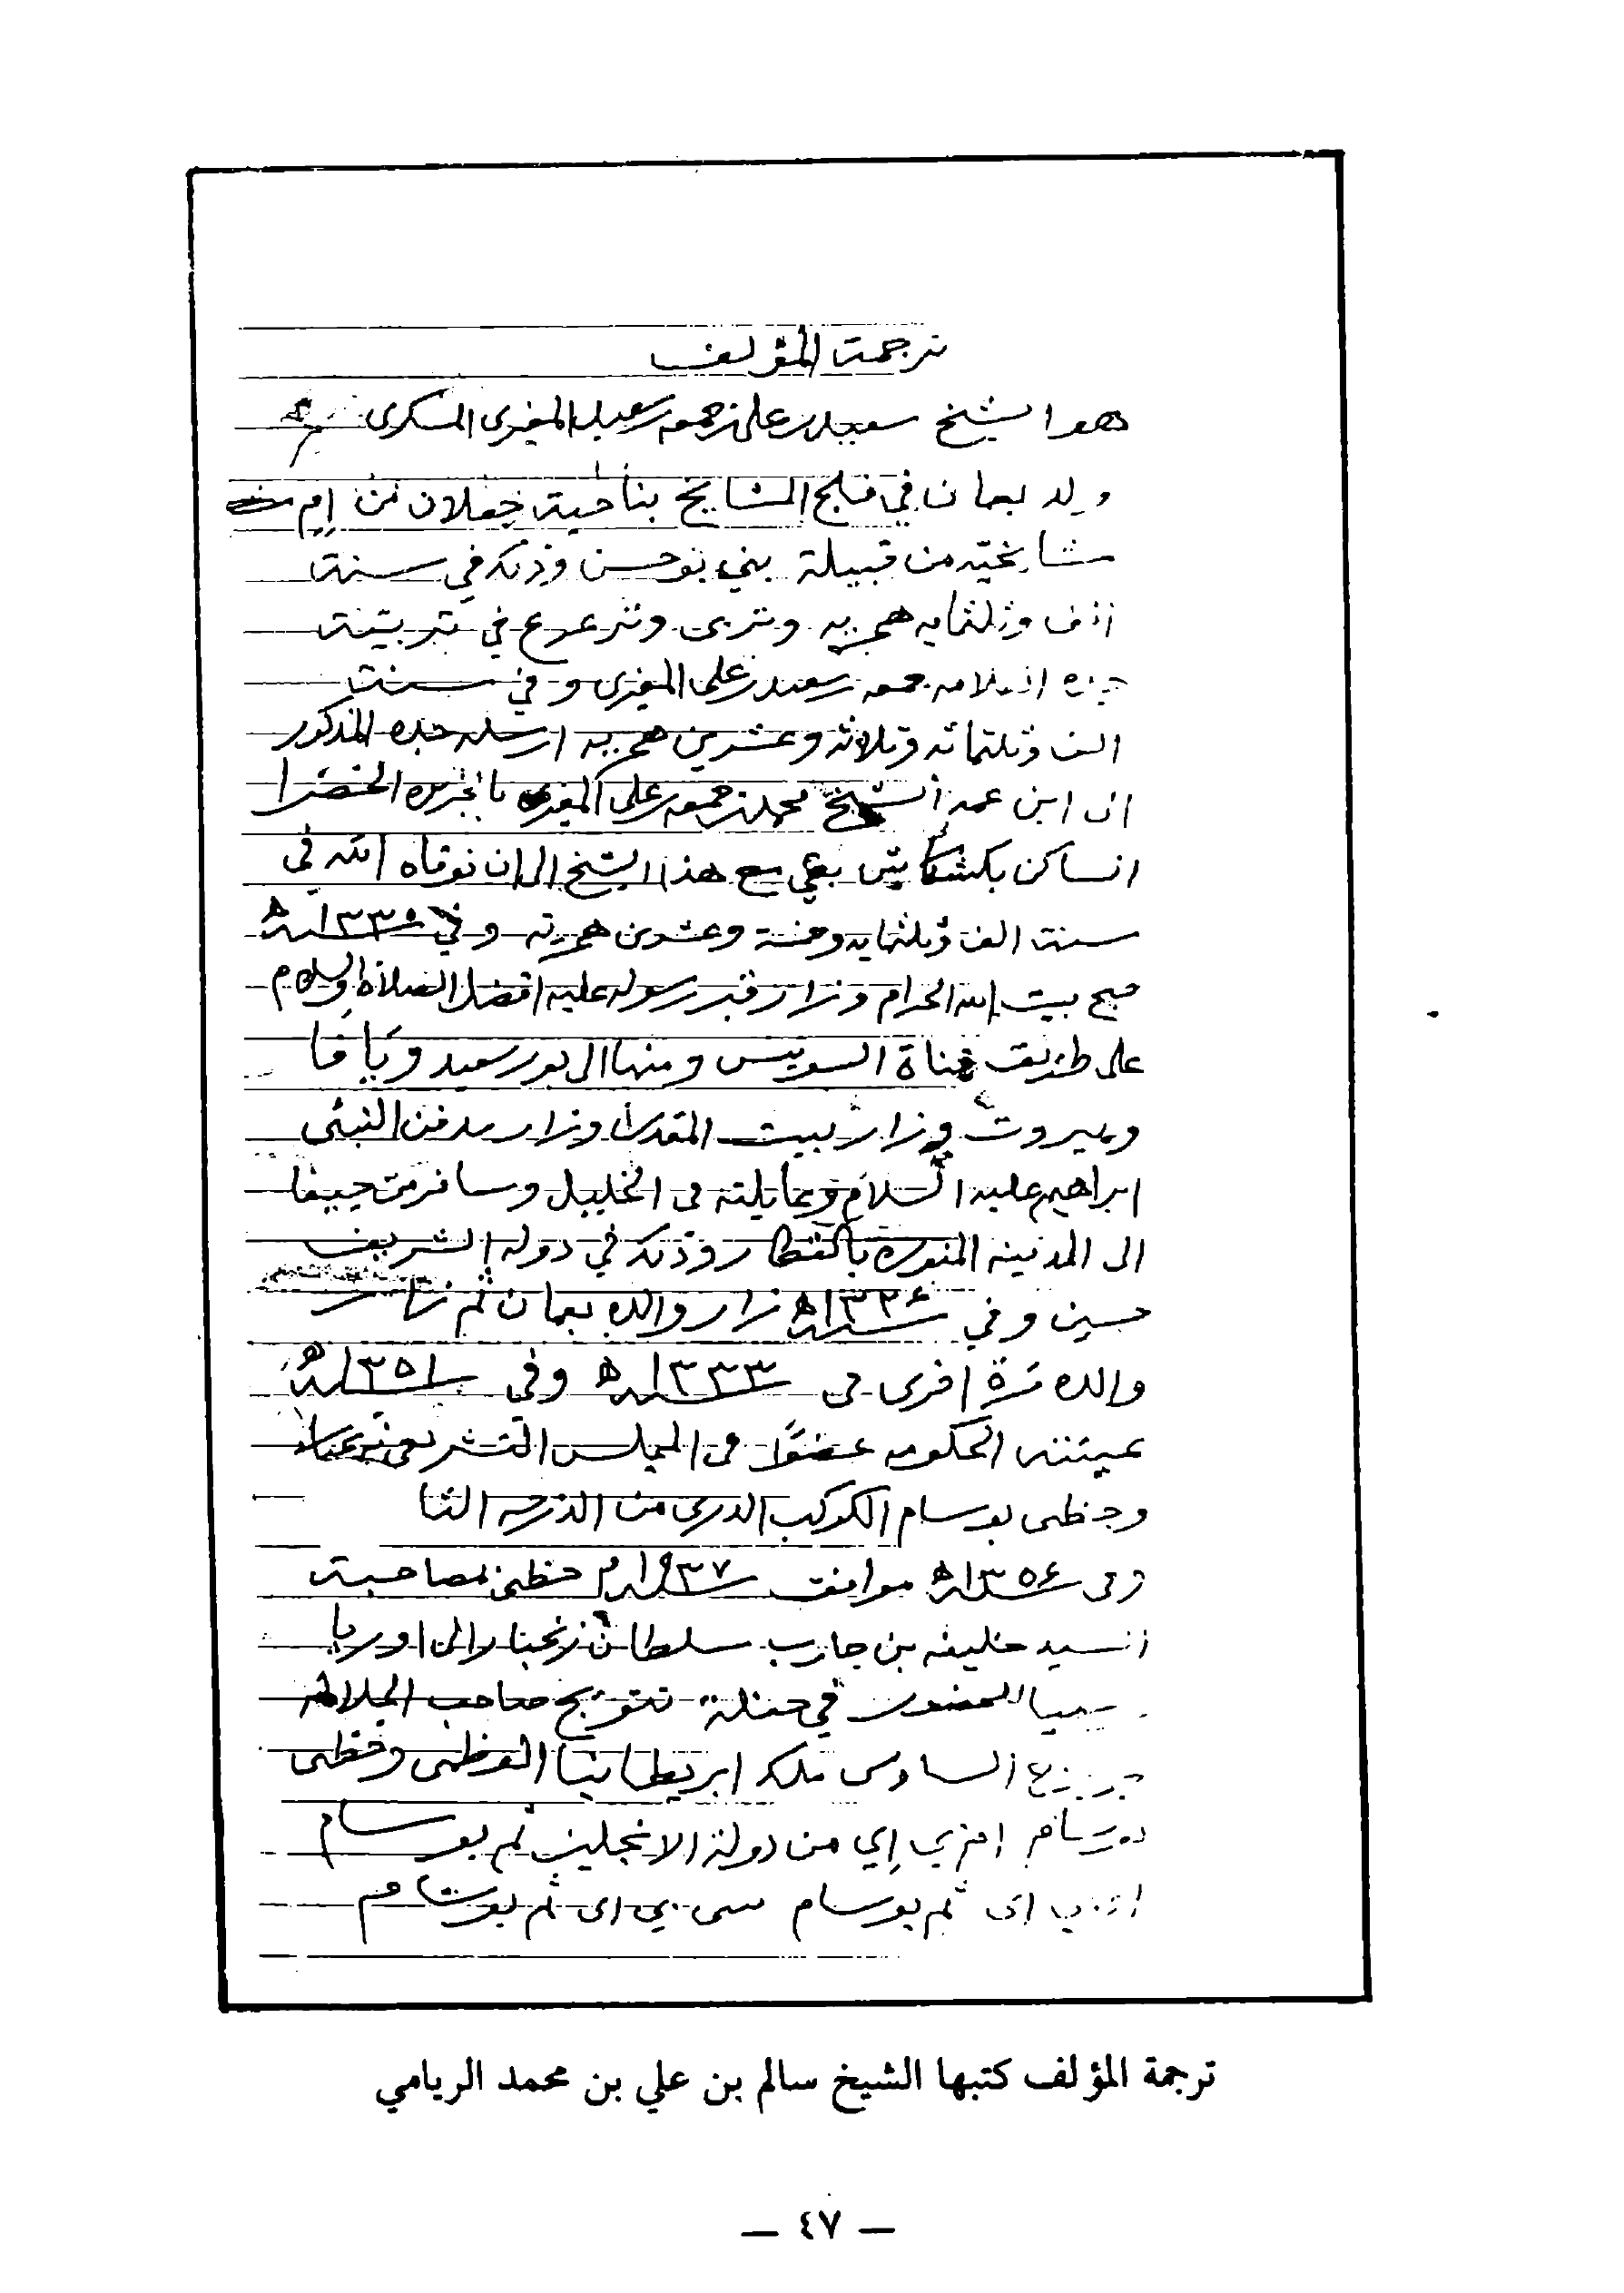 ترجمة المؤلف
هو الشيخ سعيد بن علي بن جمعه بن سعيد المغيري السكري
ولد بعمان في فلج المشايخ بناحية جعلان من
مشايخته من قبيلة بني بوحسن وذلك في سنة
الف وثلثمايه هجريه وتربى وترعرع في تربيته
جده العلامه جمعه بن سعيد بن علي المغيري وفي سنة
الف وثلثمائه وثلاثه وعشرين هجريه ارسله جده المذكور
الى ابن عمه الشيخ محمد بن جمعه بن علي المغيري بالجزيره الخضرا
الساكن بكشكاش بقي مع هذا الشيخ الى ان توفاه الله في
سنة الف وثلثمايه وخمسة وعشرين هجريه وفي
حج بيت الله الحرام وزار قبر رسوله عليه افضل الصلاة والسلام
على طريق قناة السويس ومنها الى بور سعيد ويافا
وبيروت وزار بيت المقدس وزار مدفن النبي
ابراهيم عليه السلام وعايلته في الخليل وسافر من حيفا
الى المدينه المنوره بالقطار وذلك في دولة الشريف
حسين وفي سنة زار والده بعمان ثم زار
والده مرة اخرى في سنة ١٣٣٣ه وفي سنة ١٣٥١ه
عينته الحكومه عضوًا في المجلس التشريعي بزنجبار
وحظى بوسام الكوكب الدري من الدرجه الثا
وفي سنة ١٣٥٦ه موافق سنة ١٩٣٧م حظي بمصاحبة
السيد خليفه بن حارب سلطان زنجبار الى اوربا
للحضور في حفلة تتويج صاحب الجلاله
جورج السادس ملك ابريطانيا العظمى وحظى
بوسام ام بي اي من دولة الانجليز ثم بوسام
او بي اى ثم بوسام سى بي اى ثم بوسام
ترجمة المؤلف كتبها الشيخ سالم بن علي بن محمد الريامي
— ٤٧ —